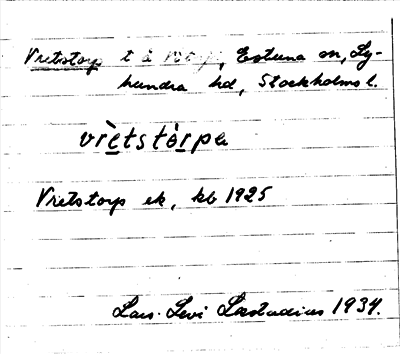 Vretstorp t å Estuna sn, Ly-
hundra hd, Stockholms l.
vrètstòrpa
Vretstorps ek, kb 1925
Lars-Levi Læstadius 1934.